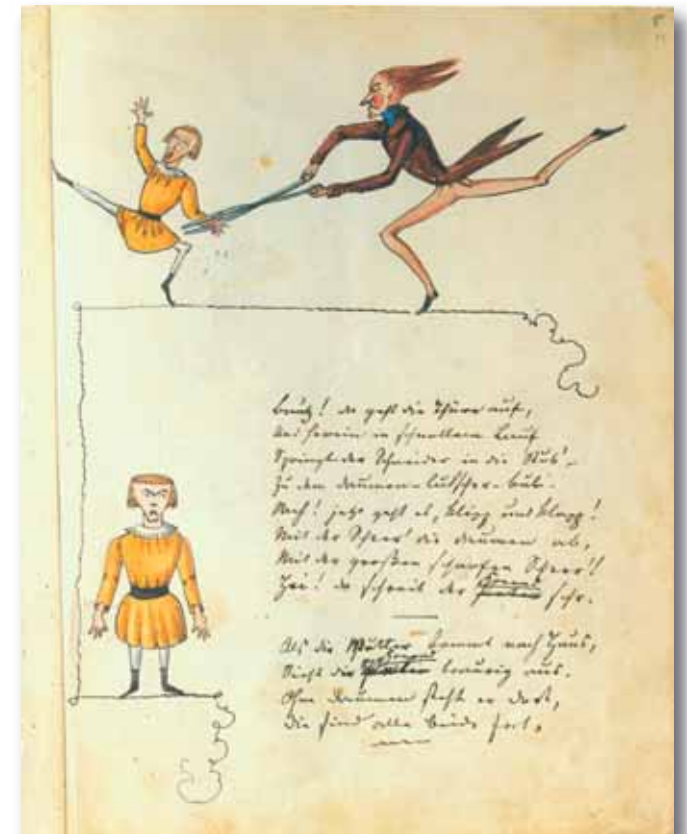 bautz! da geht die Thüre auf,
Und herein in schnellem Lauf
Springt der Schneider in die Stub'
Zu dem daumen-lutscher-bub.
Weh! jetzt geht es, klipp und klapp!
Mit der Scheer' die daumen ab,
Mit der großen scharfen Scheer'!
Hei! da schreit der Konrad sehr.
Als die Mutter kommt nach Haus,
Sieht der Konrad traurig aus.
Ohne daumen steht er dort,
die sind alle beide fort,